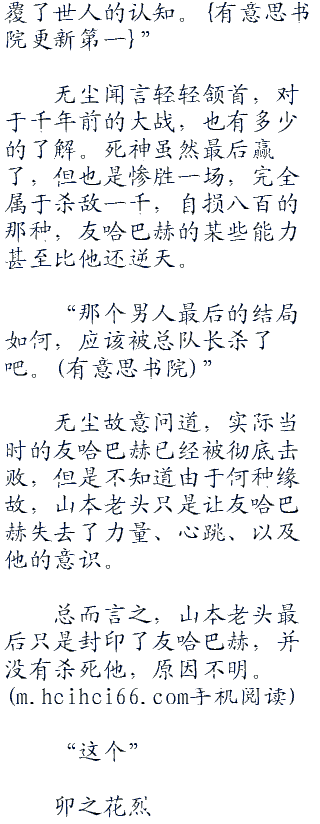 覆了世人的认知。{有意思书
院更新第一}”
无尘闻言轻轻颔首，对
于千年前的大战，也有多少
的了解。死神虽然最后赢
了，但也是惨胜一场，完全
属于杀敌一千，自损八百的
那种，友哈巴赫的某些能力
甚至比他还逆天。
“那个男人最后的结局
如何，应该被总队长杀了
吧。(有意思书院)”
无尘故意问道，实际当
时的友哈巴赫已经被彻底击
败，但是不知道由于何种缘
故，山本老头只是让友哈巴
赫失去了力量、心跳、以及
他的意识。
总而言之，山本老头最
后只是封印了友哈巴赫，并
没有杀死他，原因不明。
(m.hcihci66.com手机阅读)
“这个”
卯之花烈